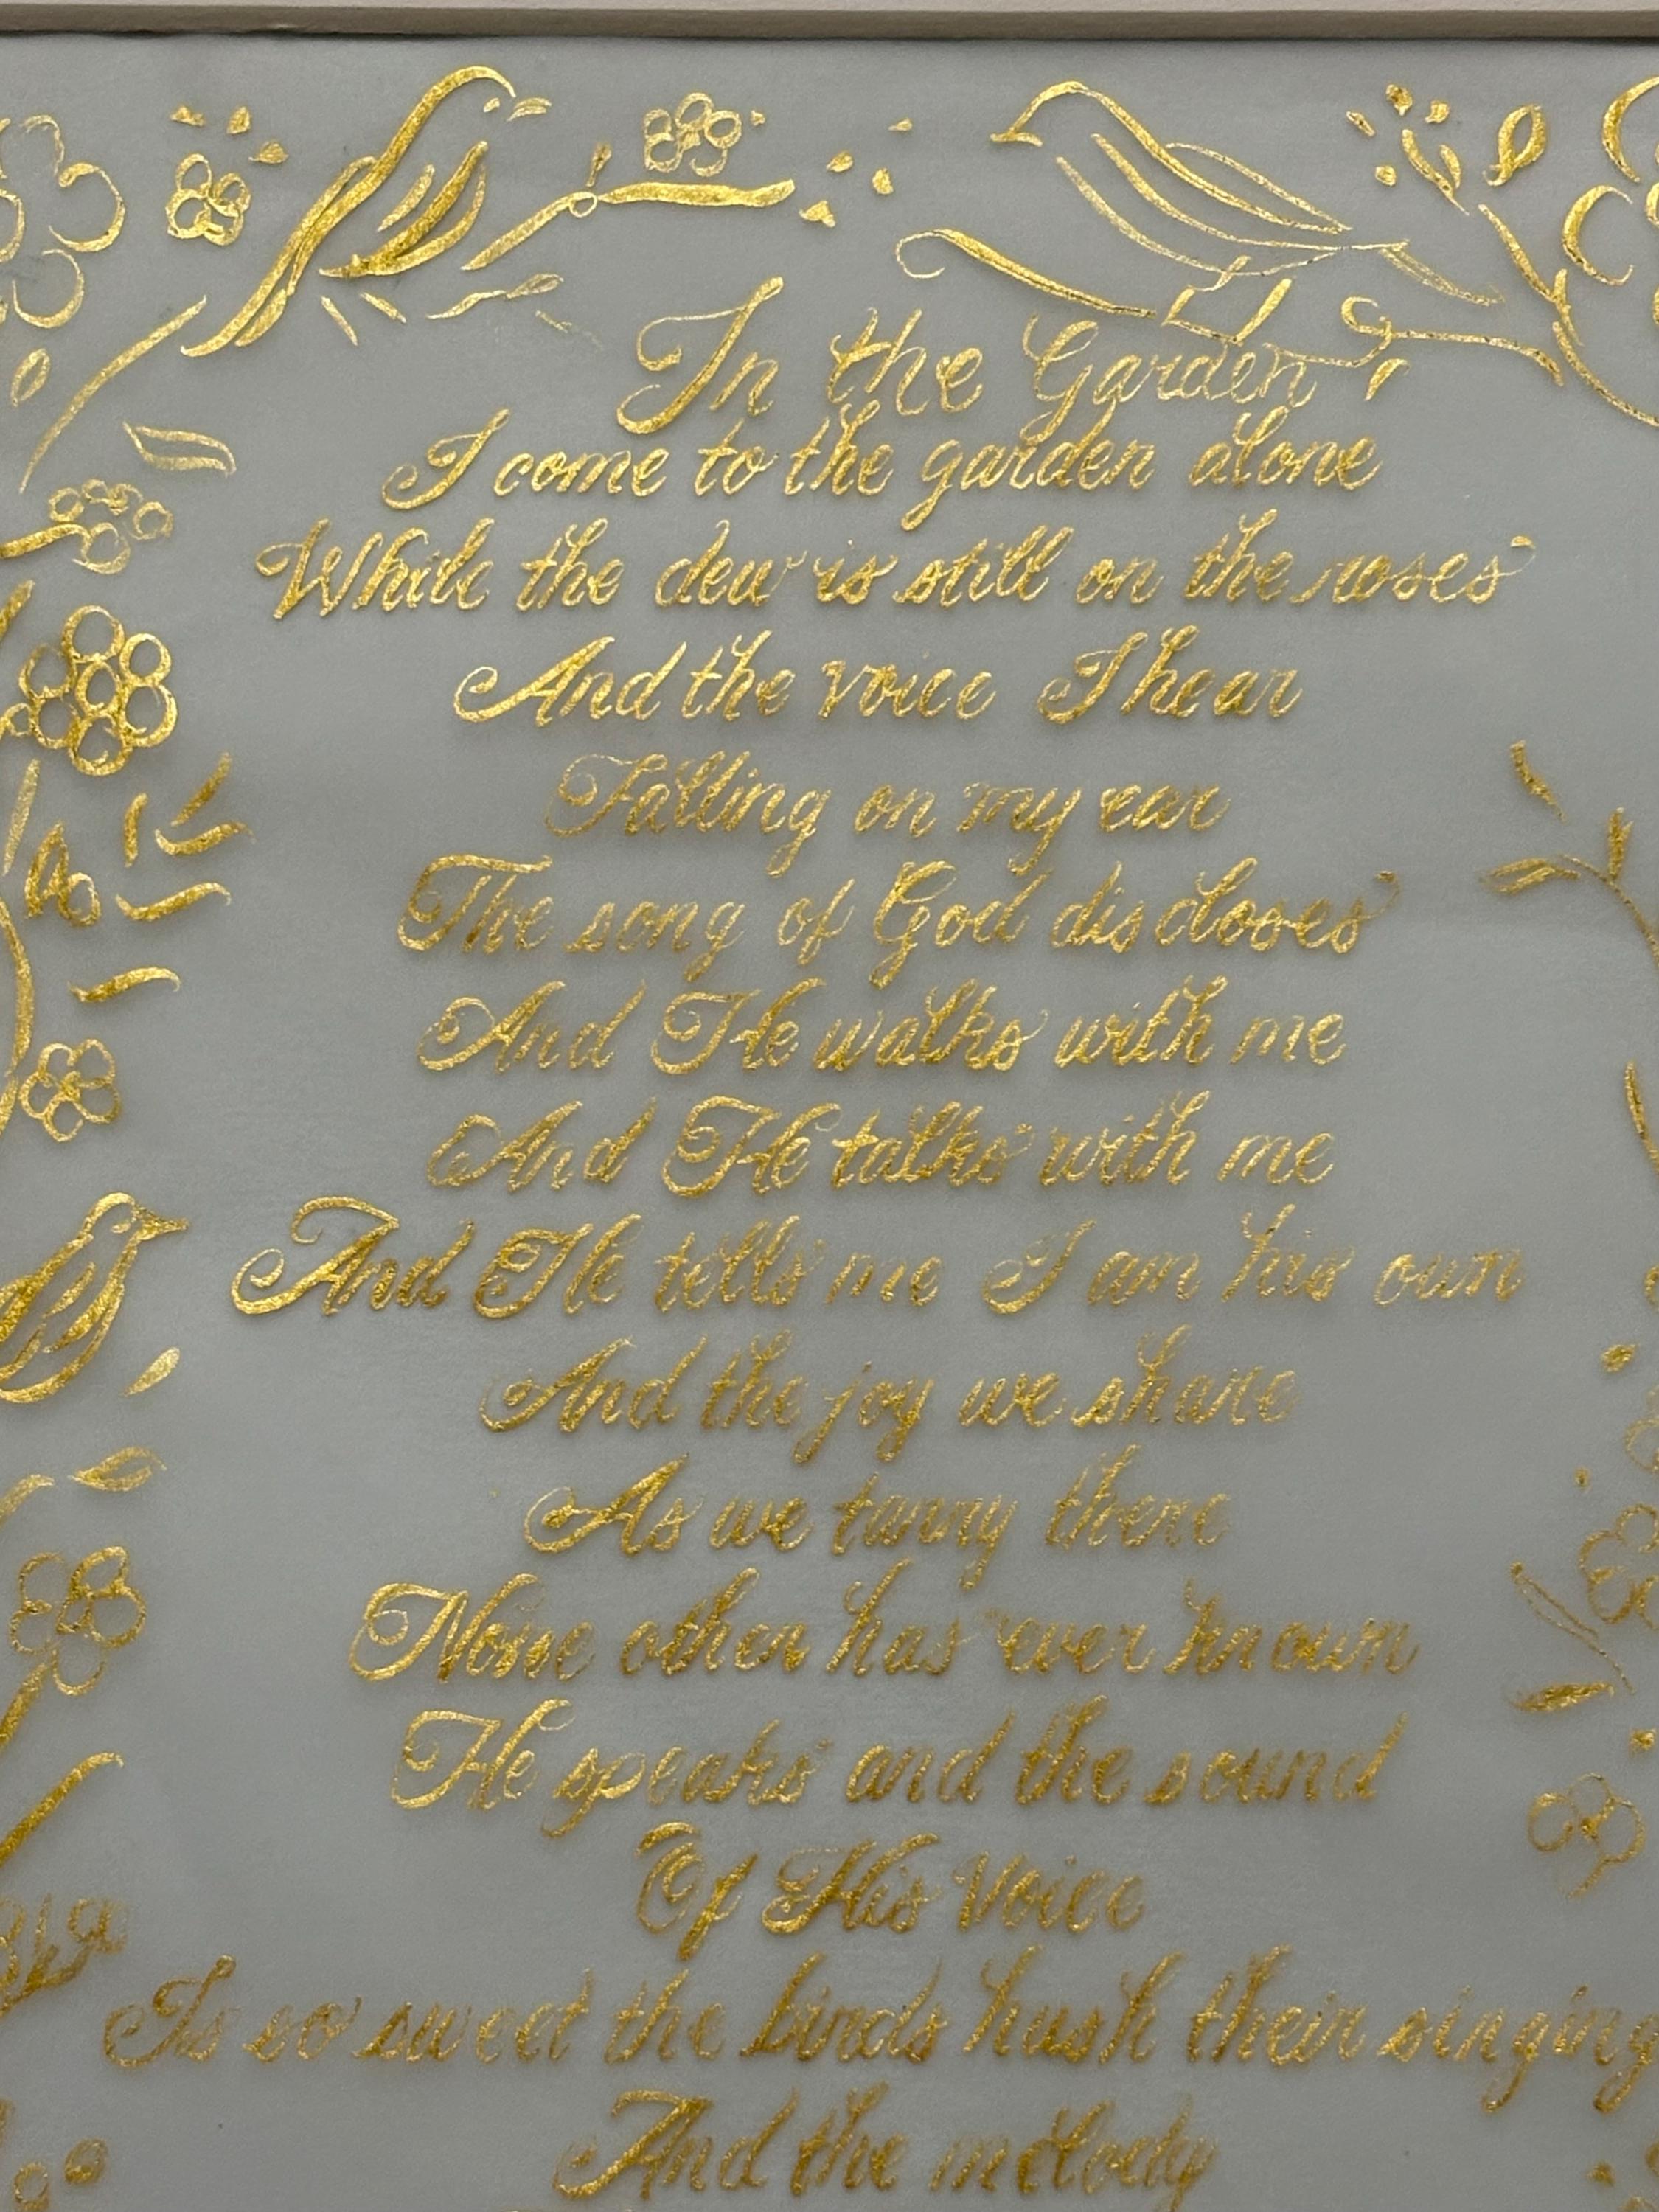 In the Garden
I come to the garden alone
While the dew is still on the roses
And the voice I hear
Falling on my ear
The song of God discloses
And He walks with me
And He talks with me
And He tells me I am his own
And the joy we share
As we tarry there
None other has ever known
He speaks and the sound
Of His Voice
Is so sweet the birds hush their singing
And the melody